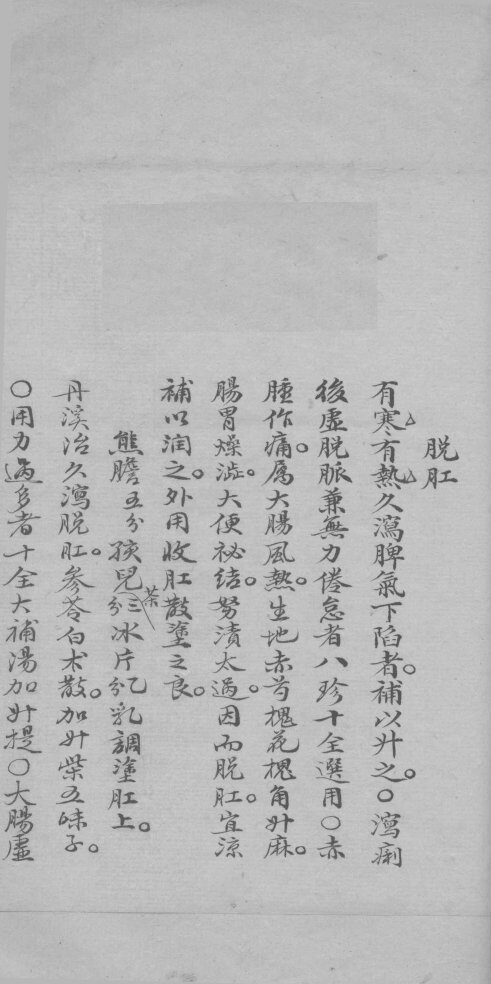 脱肛
有寒有熱久瀉脾氣下陷者。補以升之。○瀉痢
後虛脱脈兼無力倦怠者八珍十全選用○赤
腫作痛。屬大腸風熱。生地赤芍槐花槐角升麻。
腸胃燥澁。大便秘結。努漬太過。因而脱肛。宜涼
補以润之。外用收肛散塗之良。
熊膽五分孩児茶三分冰片乙分乳調塗肛上。
丹溪治久瀉脱肛。參苓白术散。加升柴五味子。
○用力過多者十全大補湯加升提○大腸虛